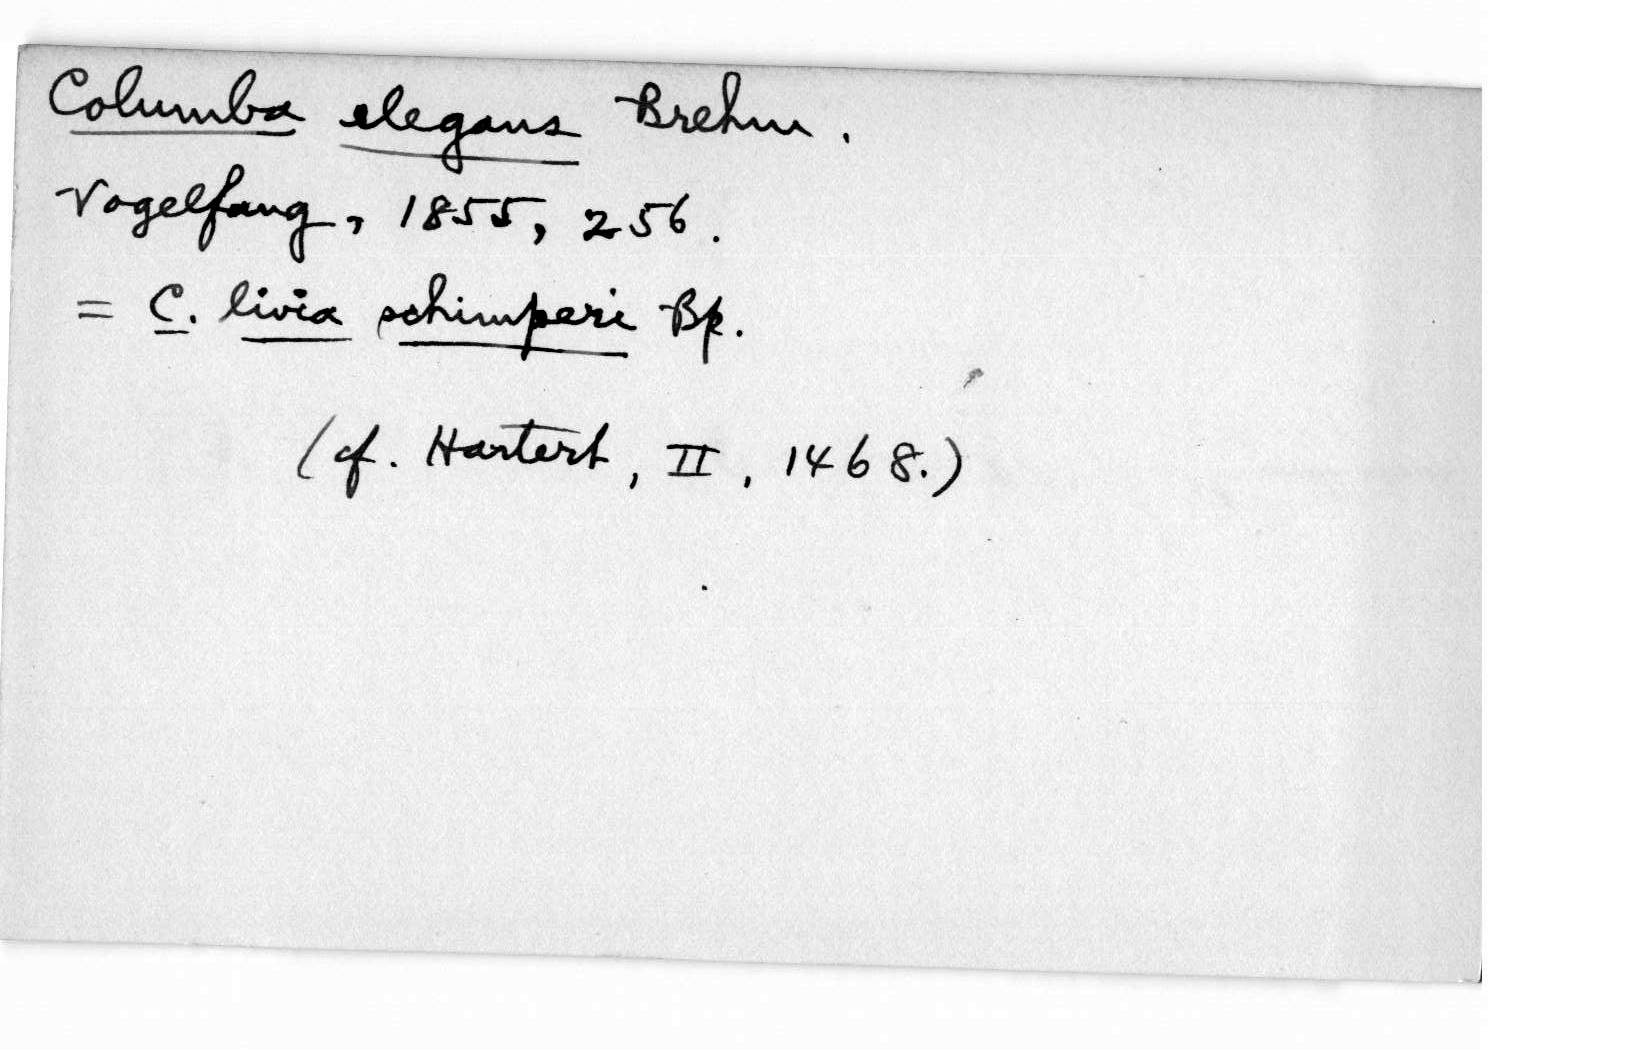 Columba elegans Brehm.
Vogelfang, 1855, 256.
= C. livia schimperi Bp.
(cf. Hartert, II, 1468.)